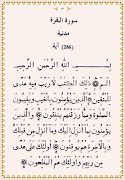 سورة البقرة
مدنية
آية (286)
بِسْمِ اللَّهِ الرَّحْمَٰنِ الرَّحِيمِ
الٓمٓ ۝ ذَٰلِكَ الْكِتَٰبُ لَا رَيْبَ فِيهِ هُدًى
لِّلْمُتَّقِينَ ۝ الَّذِينَ يُؤْمِنُونَ بِالْغَيْبِ وَيُقِيمُونَ
الصَّلَوٰةَ وَمِمَّا رَزَقْنَٰهُمْ يُنفِقُونَ ۝ وَالَّذِينَ
يُؤْمِنُونَ بِمَا أُنزِلَ إِلَيْكَ وَمَا أُنزِلَ مِن قَبْلِكَ
وَبِالْآخِرَةِ هُمْ يُوقِنُونَ ۝ أُولَٰئِكَ عَلَىٰ هُدًى
مِّن رَّبِّهِمْ وَأُولَٰئِكَ هُمُ الْمُفْلِحُونَ ۝